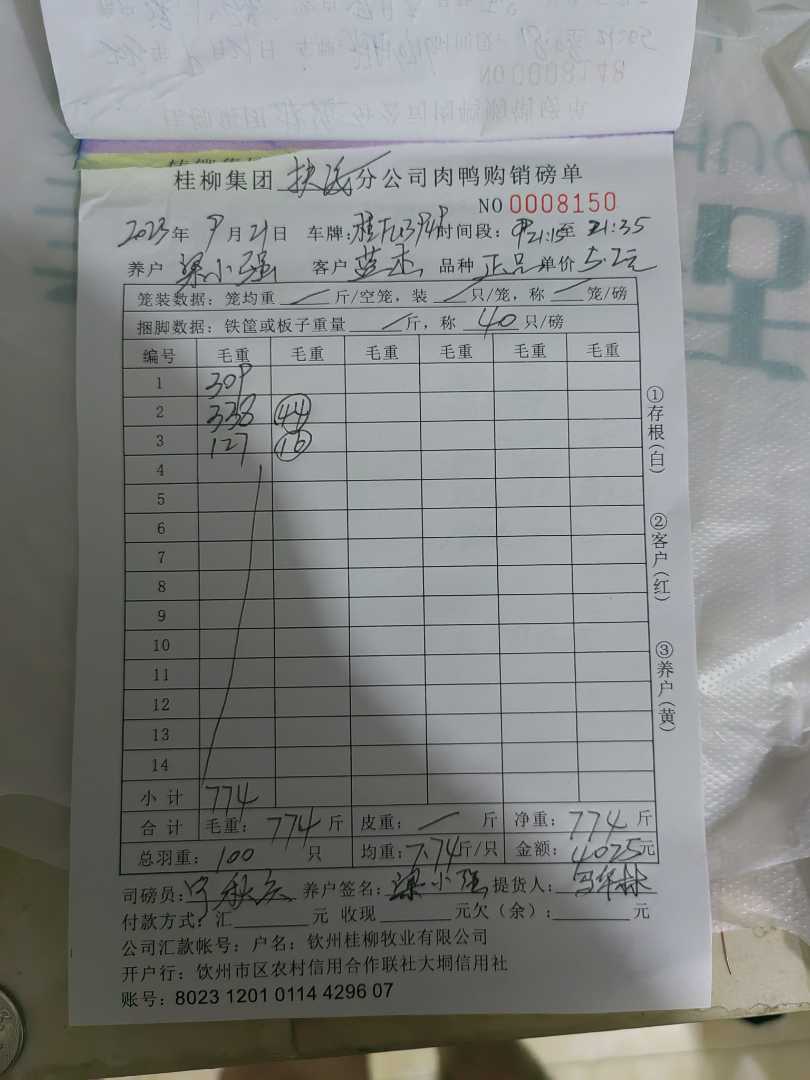 桂柳集团 分公司肉鸭购销磅单
NO 0008150
2023年 9月21日 车牌: 时间段: 21:15至 21:35
养户 梁小强 客户 蓝杰 品种 正品 单价 5.2元
笼装数据: 笼均重 / 斤/空笼, 装 / 只/笼, 称 / 笼/磅
捆脚数据: 铁筐或板子重量 / 斤, 称 40 只/磅
编号 毛重 毛重 毛重 毛重 毛重 毛重
1 309
2 338 44
3 127 16
4
5
6
7
8
9
10
11
12
13
14
小计 774
合计 毛重: 774 斤 皮重: / 斤 净重: 774 斤
总羽重: 100 只 均重: 7.74斤/只 金额: 4025元
司磅员: 养户签名: 梁小强 提货人:
付款方式: 汇 元 收现 元欠(余): 元
公司汇款帐号: 户名: 钦州桂柳牧业有限公司
开户行: 钦州市区农村信用合作联社大垌信用社
账号: 8023 1201 0114 4296 07
①存根(白)
②客户(红)
③养户(黄)